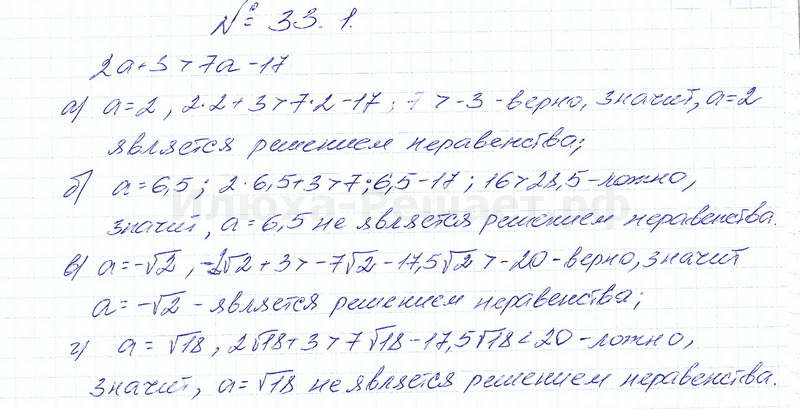 № 33.1.
2a+3>7a-17
а) a=2, 2·2+3>7·2-17; 7>-3 - верно, значит, a=2
является решением неравенства;
б) a=6,5; 2·6,5+3>7·6,5-17; 16>28,5 - ложно,
Илюха-Решает.рф
значит, a=6,5 не является решением неравенства.
в) a=-√2, -2√2+3>-7√2-17, 5√2>-20 - верно, значит
a=-√2 - является решением неравенства;
г) a=√18, 2√18+3>7√18-17, 5√18<20 - ложно,
значит, a=√18 не является решением неравенства.